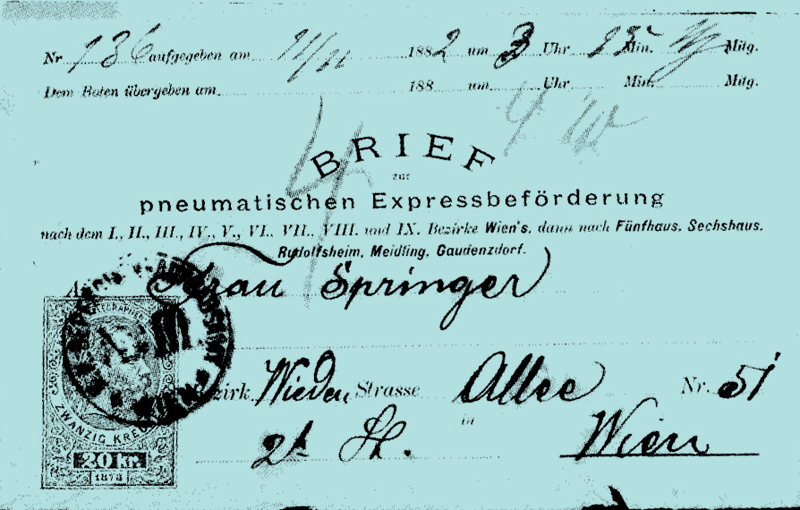 Nr 136 aufgegeben am 11/11 1882 um 3 Uhr 25 Min. Mitg.
Dem Boten übergeben am 188 um Uhr Min. Mitg.
4
BRIEF
zur
pneumatischen Expressbeförderung
nach dem I., II., III., IV., V., VI., VII., VIII. und IX. Bezirke Wien's, dann nach Fünfhaus, Sechshaus,
Rudolfsheim, Meidling, Gaudenzdorf.
Frau Springer
Bezirk Wieden Strasse Allee Nr. 51
2t St. in Wien
ZWANZIG
20 kr.
1873